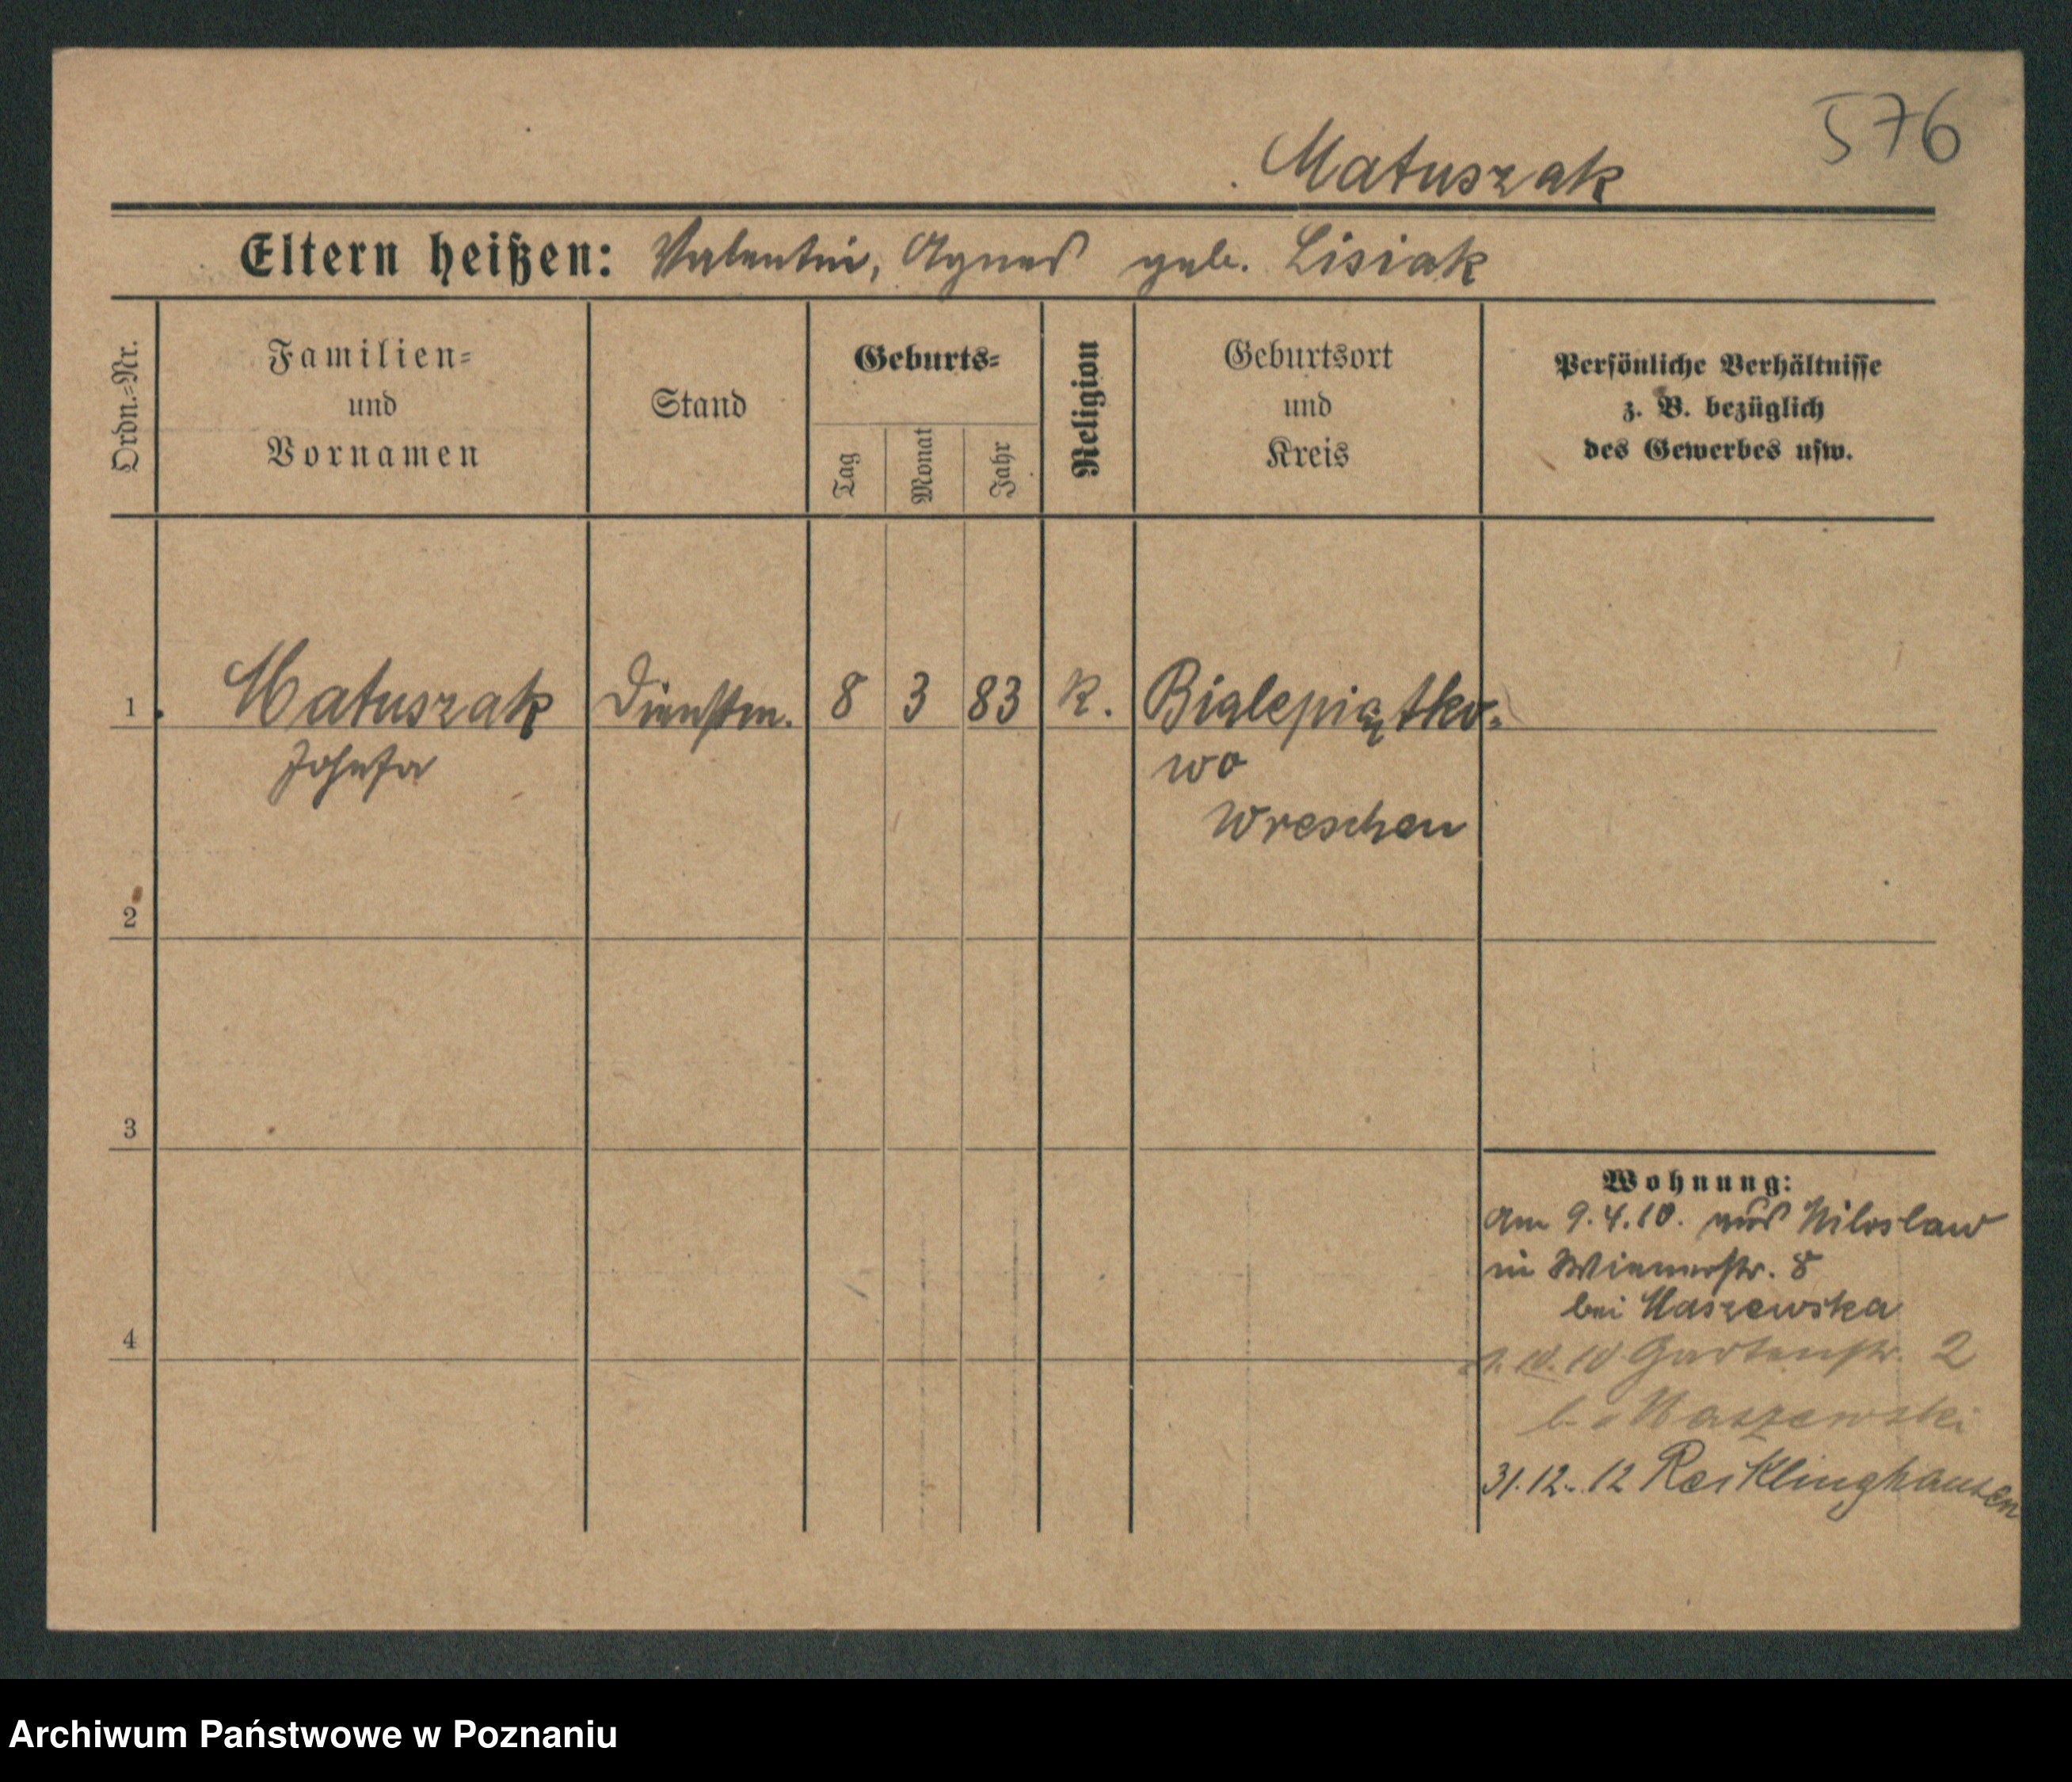 576
Matuszak
Eltern heißen: Valentin, Agnes geb. Lisiak
Ordn.=Nr.
Familien=
und
Vornamen
Stand
Geburts=
Tag
Monat
Jahr
Religion
Geburtsort
und
Kreis
Persönliche Verhältnisse
z. B. bezüglich
des Gewerbes usw.
1 Matuszak Dienstm. 8 3 83 K. Bialepiątko=
Josefa wo
Wreschen
2
3
4
Wohnung:
Am 9.4.10. aus Miloslaw
in Wienerstr. 8
bei Maszewska
10. 10 Gartenstr. 2
b. Maszewski
31.12.12 Recklinghausen
Archiwum Państwowe w Poznaniu